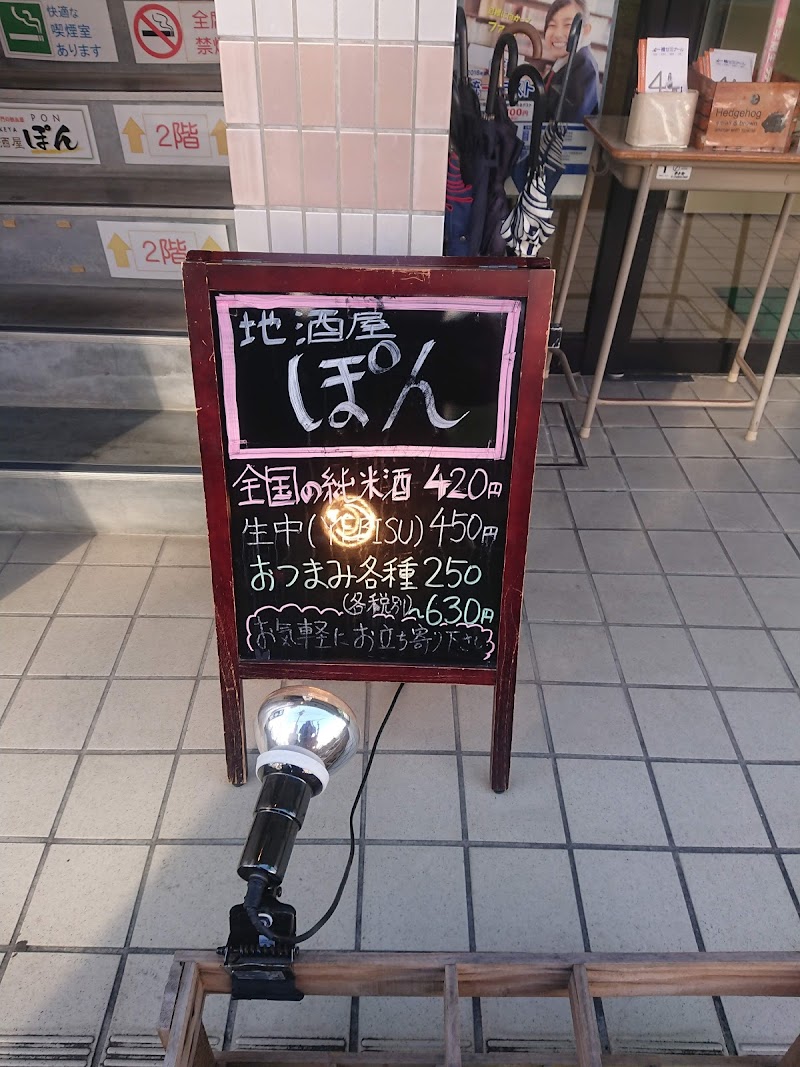 快適な
喫煙室
あります
禁
PON
酒屋 ぽん
2階
2階
地酒屋
ぽん
全国の純米酒 420円
生中(YEBISU) 450円
おつまみ各種 250
(各税別)~630円
お気軽にお立ち寄り下さい
Hedgehog